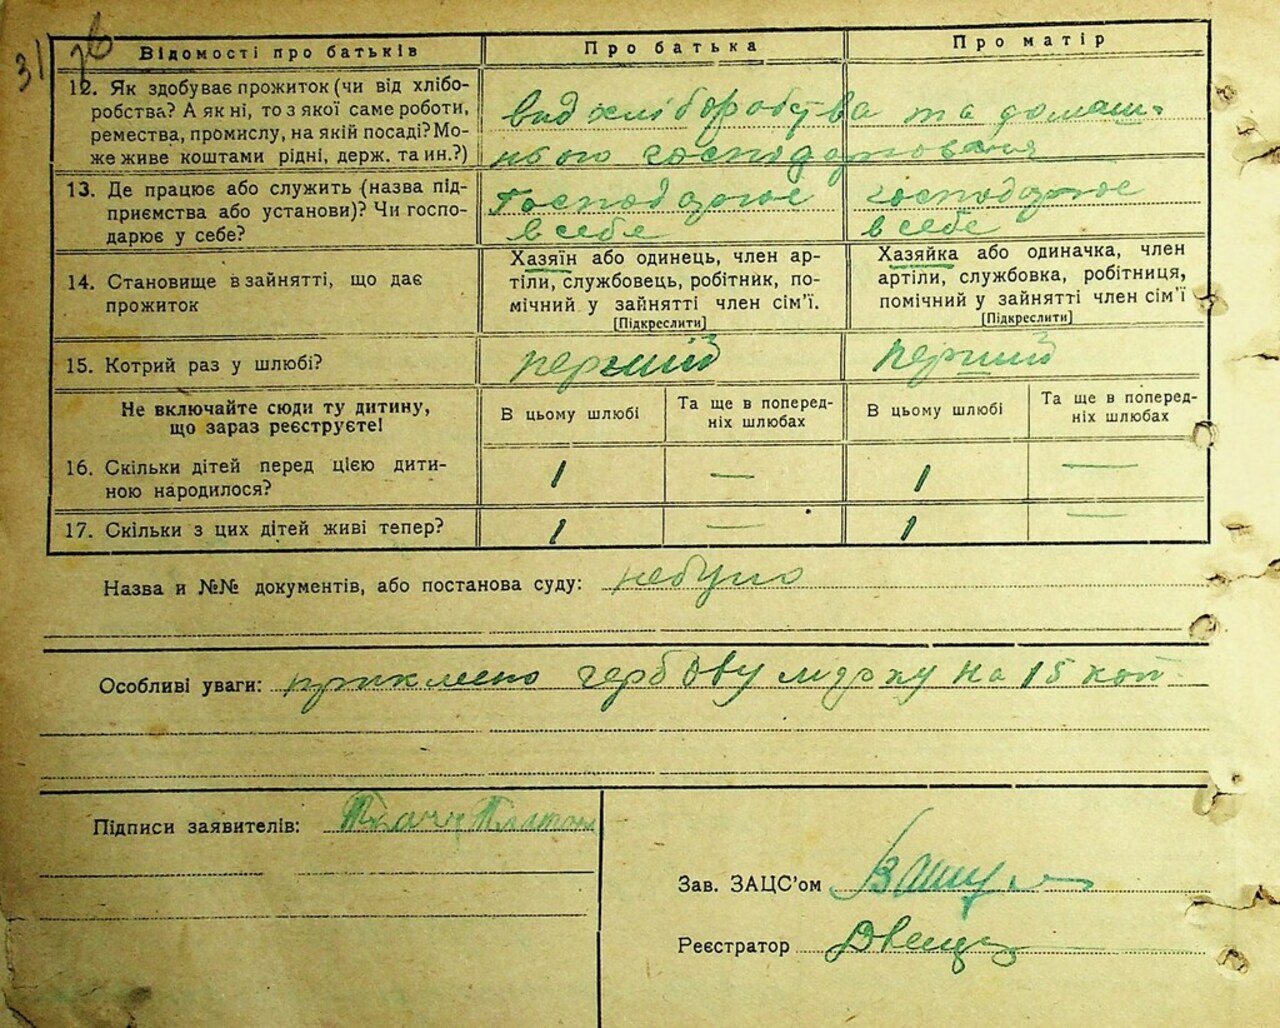 31 зв
Відомості про батьків
Про батька
Про матір
12. Як здобуває прожиток (чи від хлібо-
робства? А як ні, то з якої саме роботи,
ремества, промислу, на якій посаді? Мо-
же живе коштами рідні, держ. та ин.?)
від хліборобства та домаш-
нього господарювання
13. Де працює або служить (назва під-
приємства або установи)? Чи госпо-
дарює у себе?
Господарює
в себе
господарює
в себе
14. Становище в зайнятті, що дає
прожиток
Хазяїн або одинець, член ар-
тіли, службовець, робітник, по-
мічний у зайнятті член сім’ї.
[Підкреслити]
Хазяйка або одиначка, член
артіли, службовка, робітниця,
помічний у зайнятті член сім’ї
[Підкреслити]
15. Котрий раз у шлюбі?
перший
перший
Не включайте сюди ту дитину,
що зараз реєструєте!
В цьому шлюбі
Та ще в поперед-
ніх шлюбах
В цьому шлюбі
Та ще в поперед-
ніх шлюбах
16. Скільки дітей перед цією дити-
ною народилося?
1 — 1 —
17. Скільки з цих дітей живі тепер?
1 — 1 —
Назва и №№ документів, або постанова суду: небуло
Особливі уваги: приклеено гербову марку на 15 коп
Підписи заявителів: Ткачук Платон
Зав. ЗАЦС’ом
Реєстратор